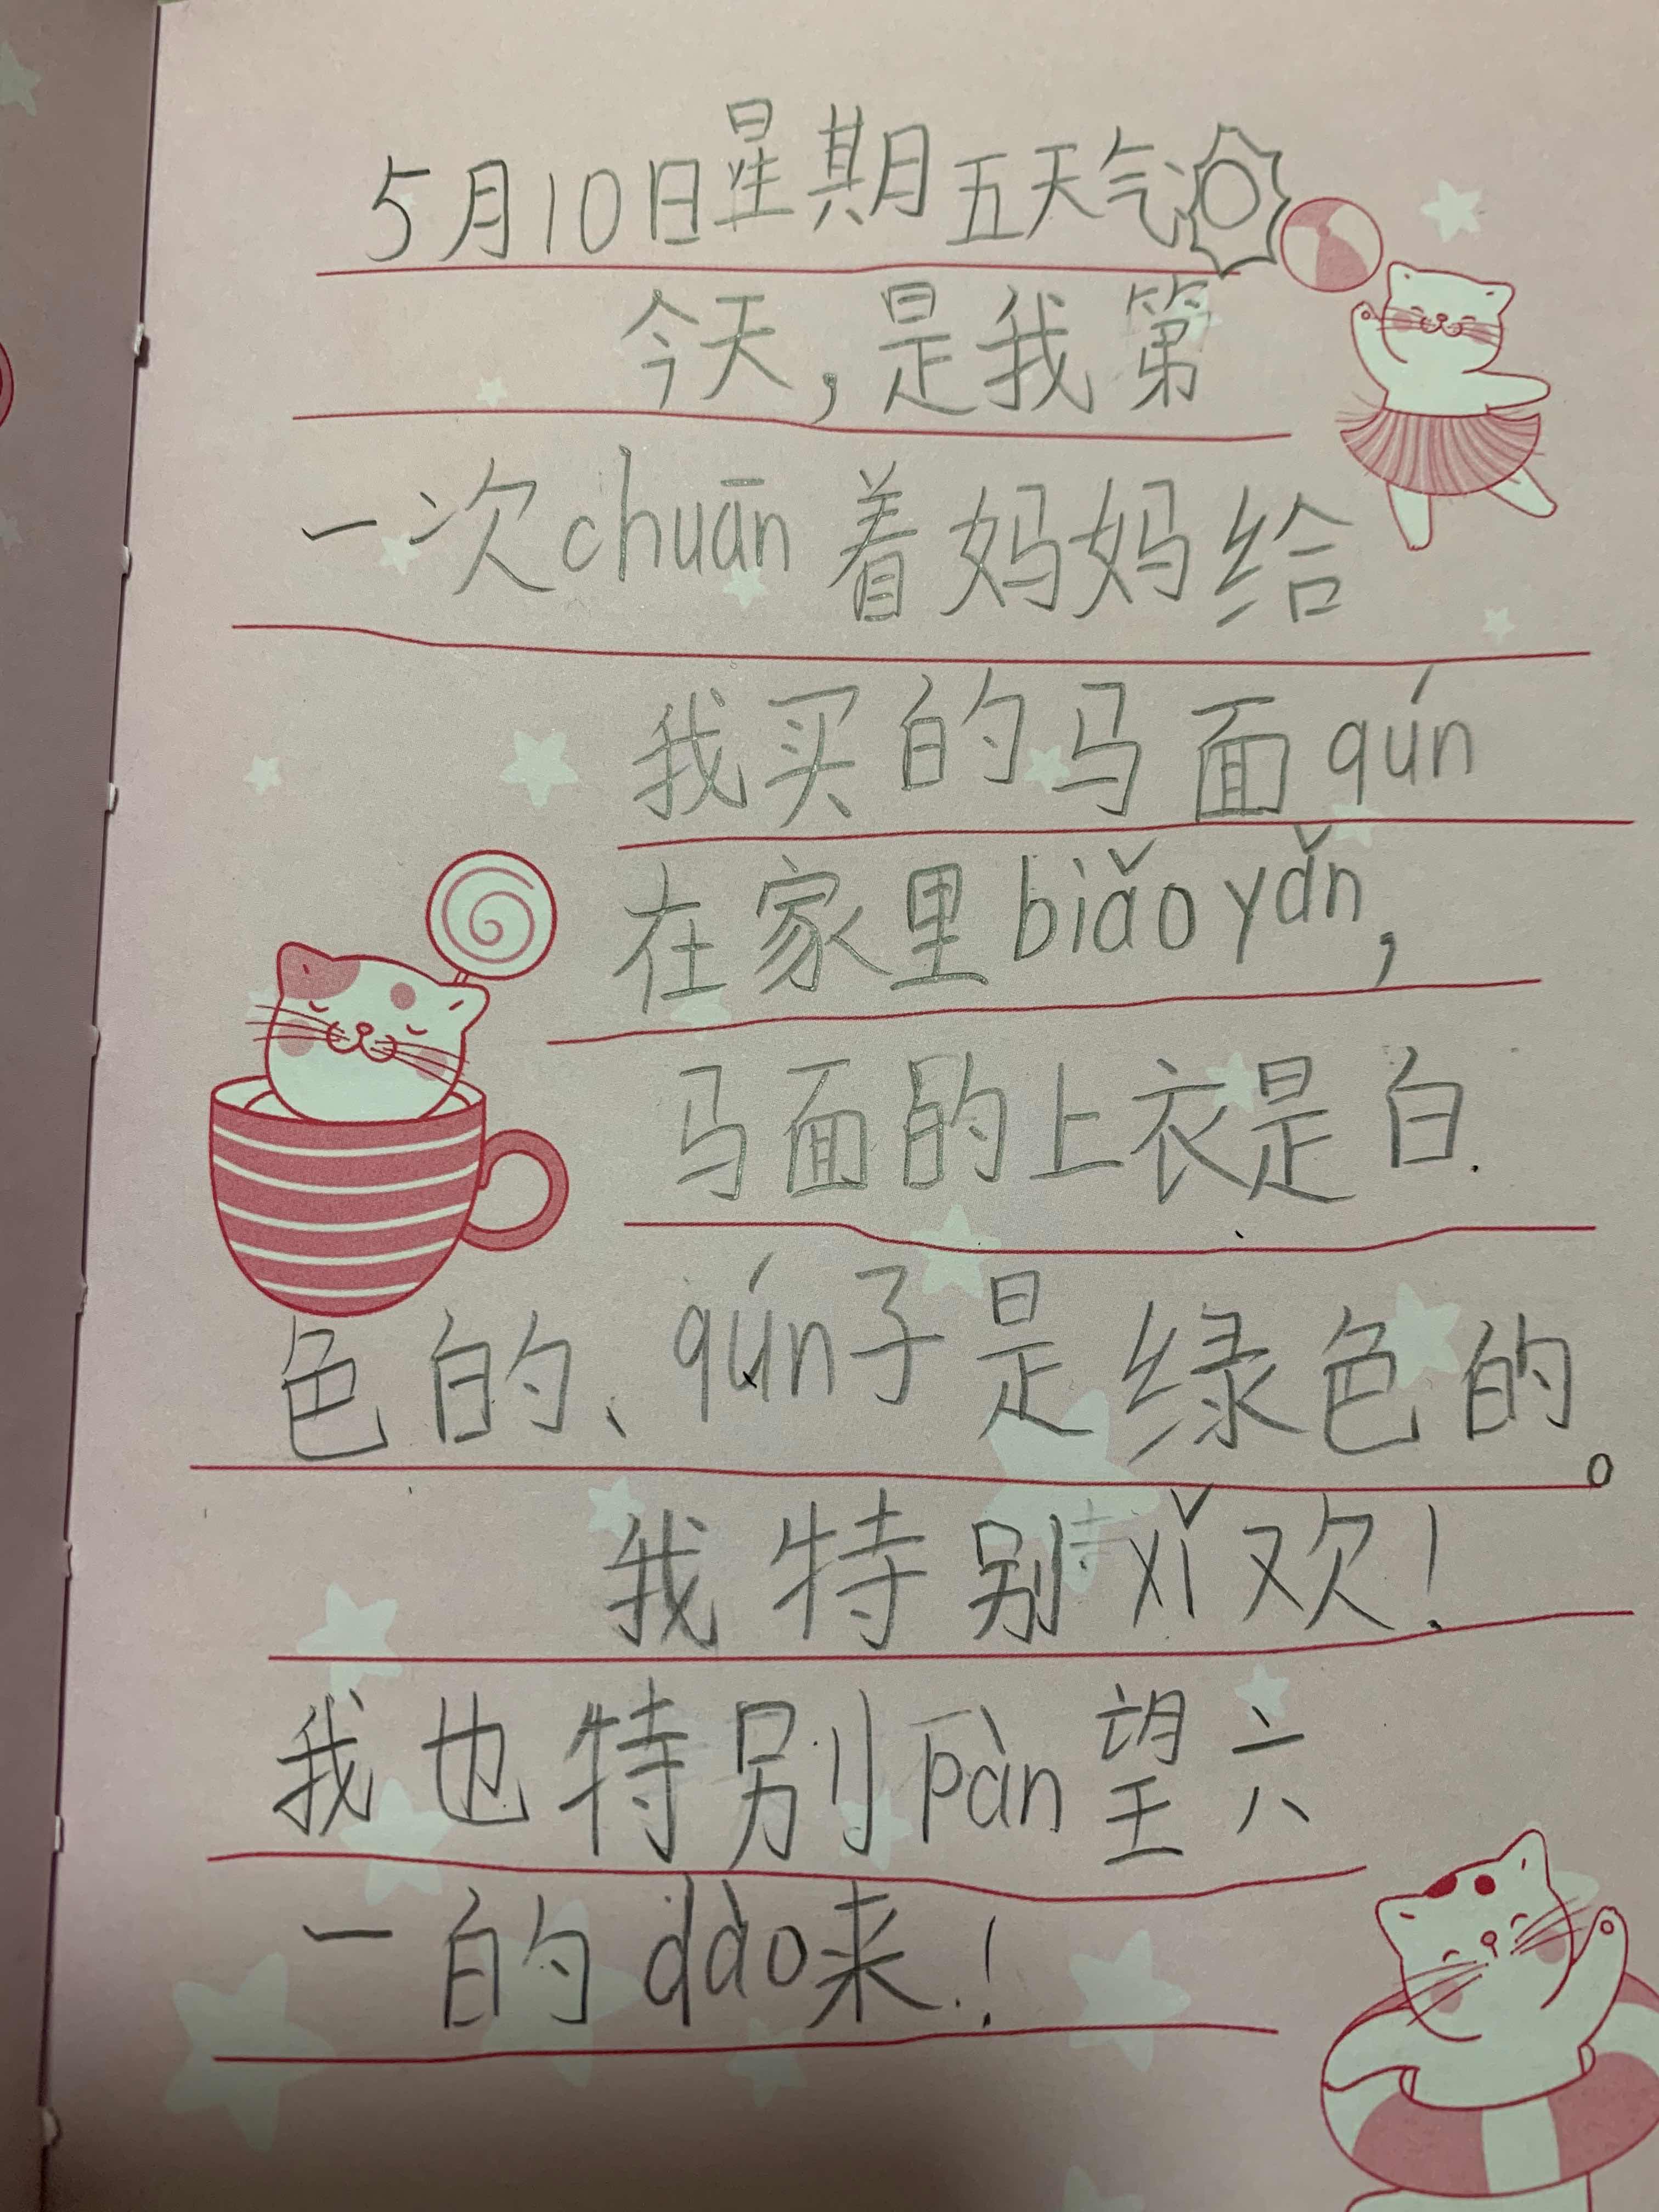 5月10日星期五天气
今天,是我第
一次chuān着妈妈给
我买的马面qún
在家里biǎo yǎn,
马面的上衣是白
色的、qún子是绿色的。
我特别xǐ欢!
我也特别pàn望六
一的dào来!